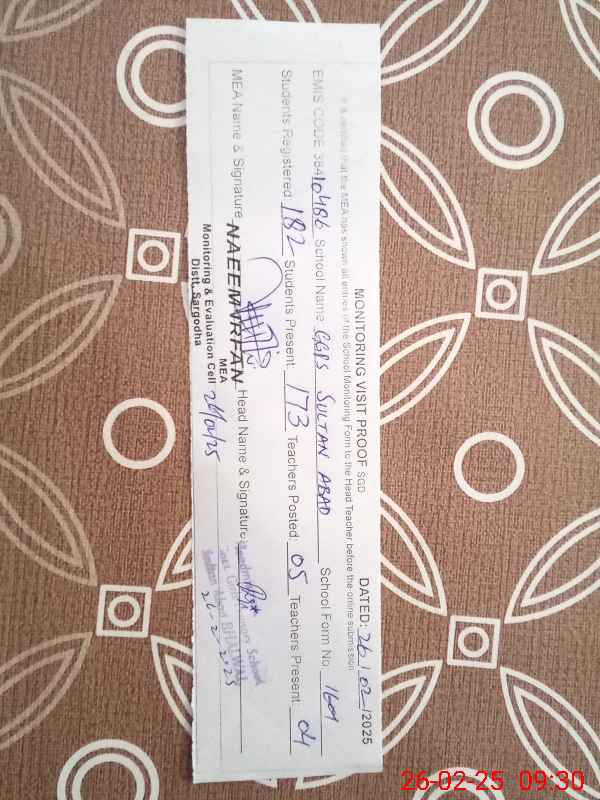 MONITORING VISIT PROOF SGD DATED: 26/02/2025
It is certified that the MEA has shown all entries of the School Monitoring Form to the Head Teacher before the online submission
EMIS CODE 38410486 School Name GGPS SULTAN ABAD School Form No. 1601
Students Registered 182 Students Present: 173 Teachers Posted: 05 Teachers Present: 04
MEA Name & Signature NAEEM IRFAN Head Name & Signature
MEA
Monitoring & Evaluation Cell 26/02/25
Distt. Sargodha
School
Sultan Abad BHALWAL
26-2-2025
26-02-25 09:30